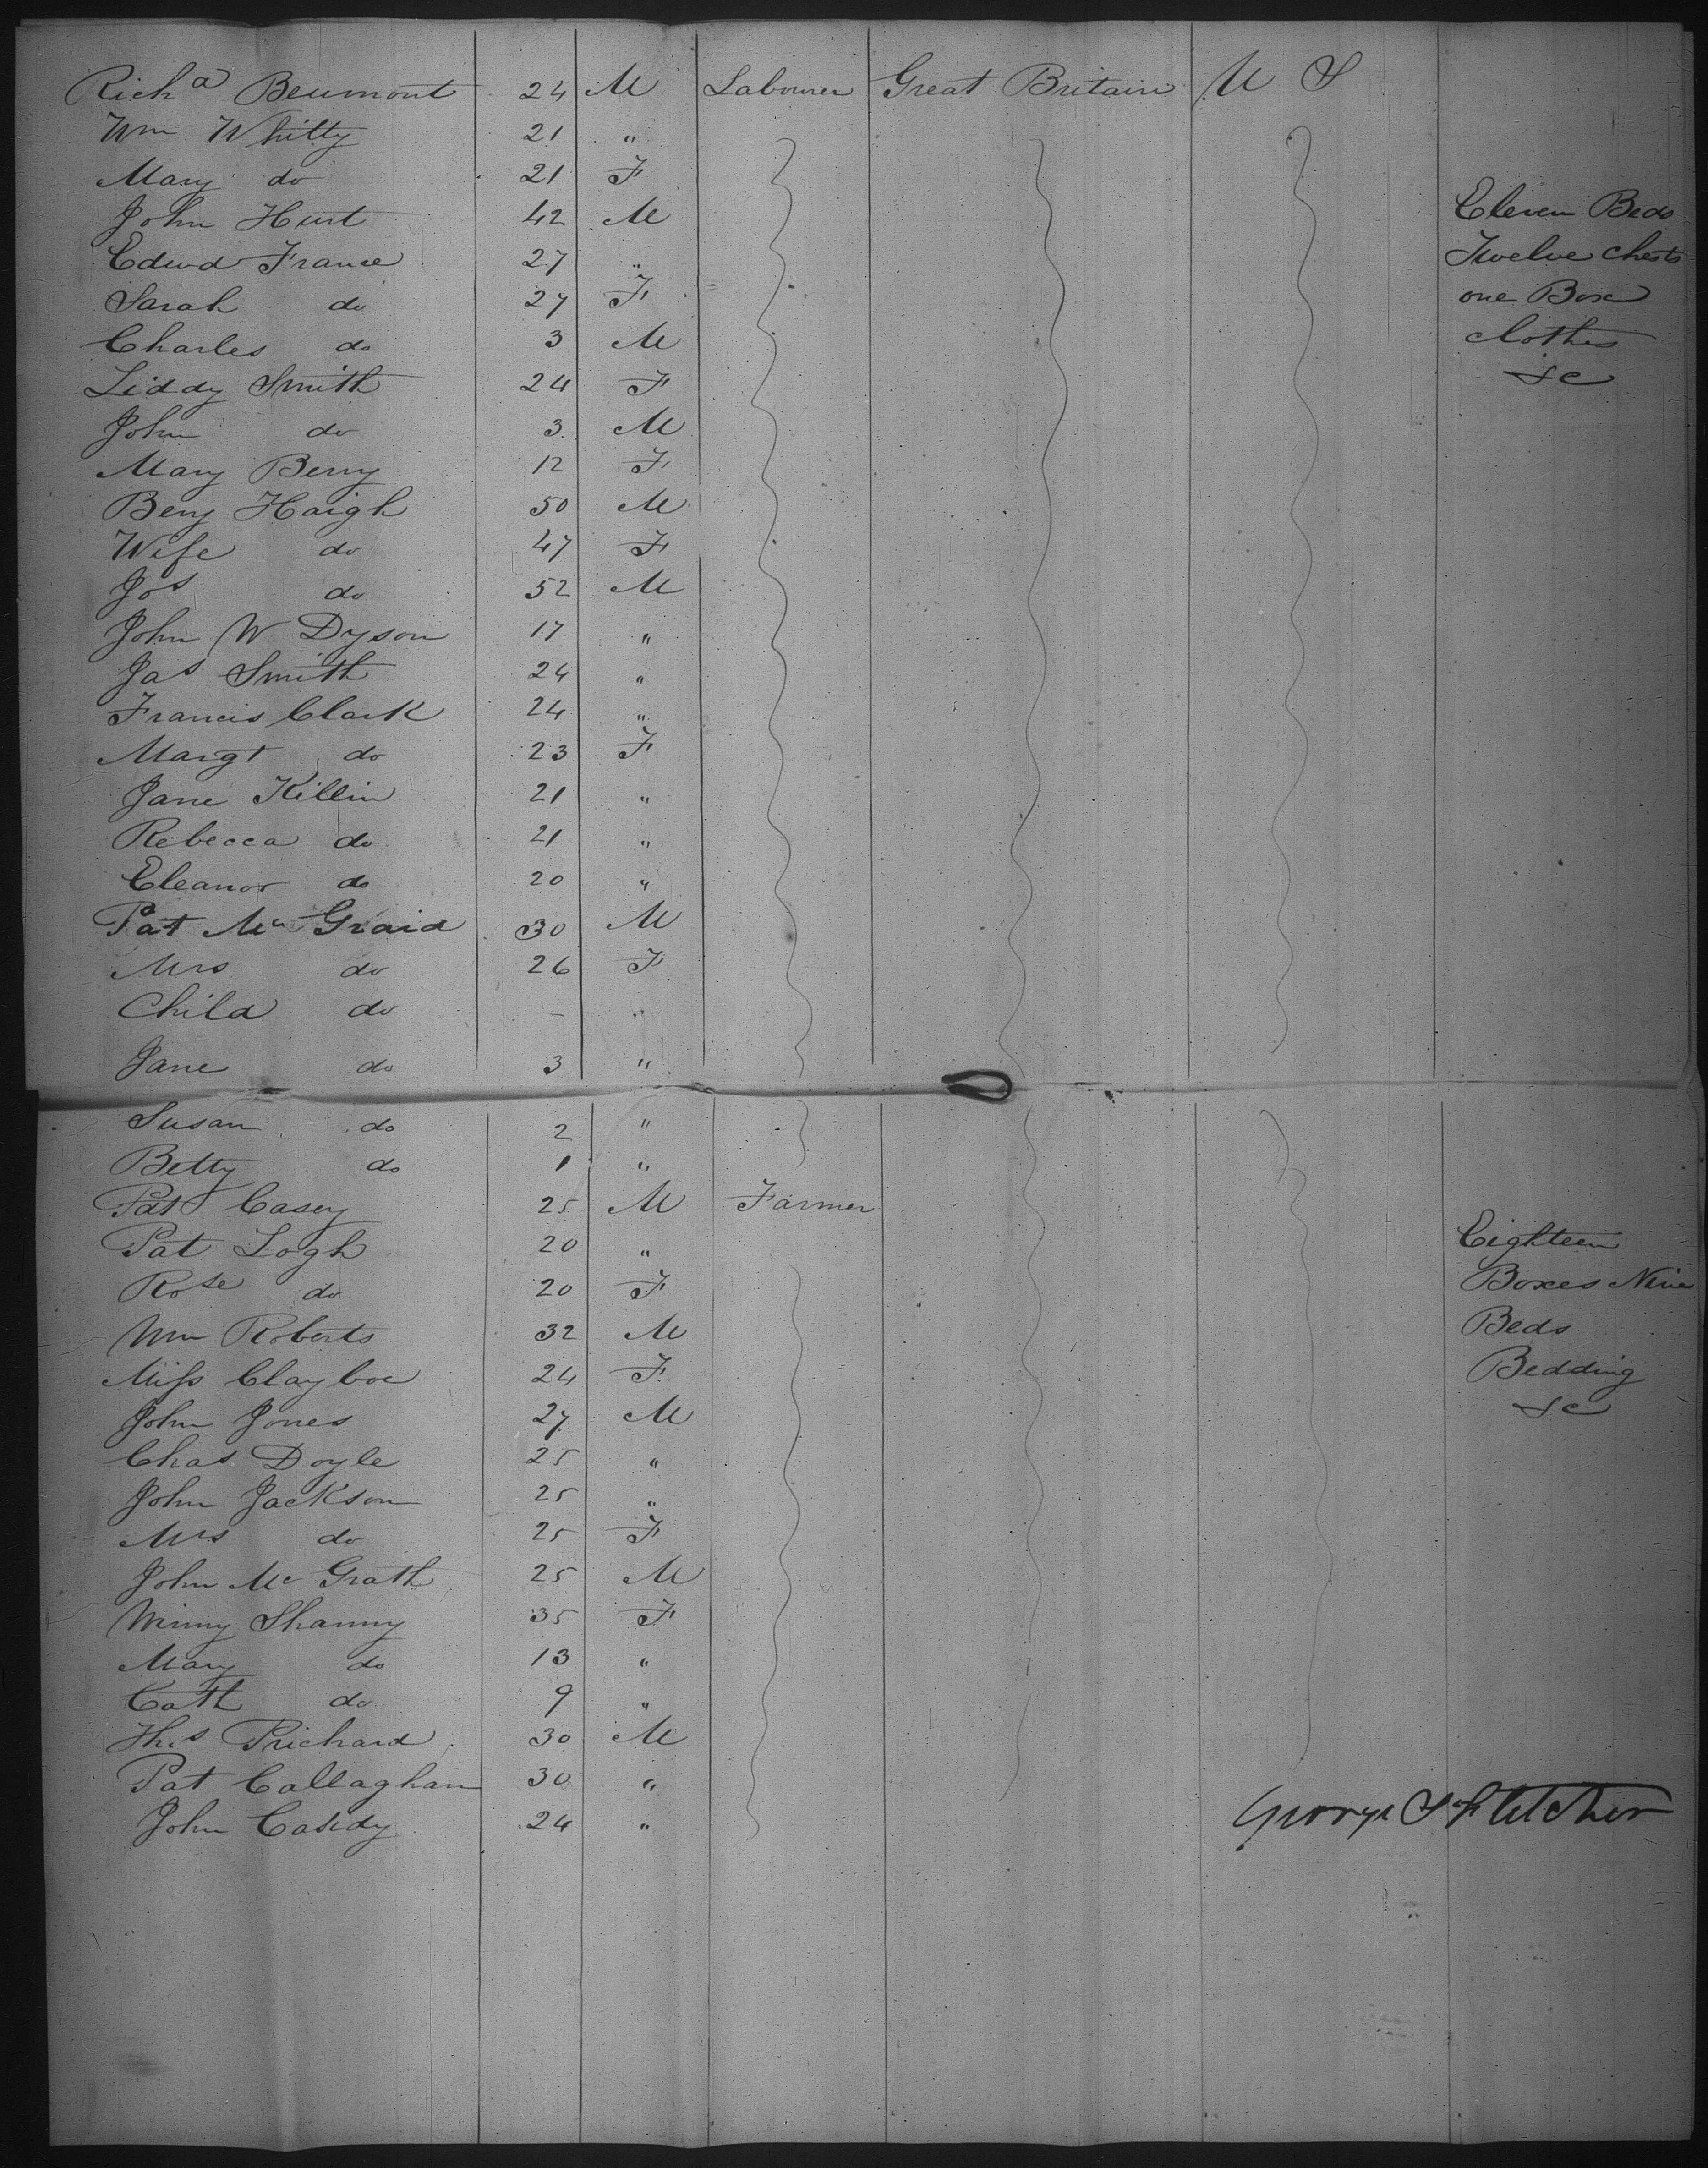 Richd Beumont 24 M Labourer Great Britain U S
Wm Whitty 21 "
Mary do 21 F
John Hurt 42 M Eleven Beds
Edwd France 27 " Twelve Chests
Sarah do 27 F one Box
Charles do 3 M Clothes
Liddy Smith 24 F &c
John do 3 M
Mary Berry 12 F
Benj Haigh 50 M
Wife do 47 F
Jos do 52 M
John W Dyson 17 "
Jas Smith 24 "
Francis Clark 24 "
Margt do 23 F
Jane Killin 21 "
Rebecca do 21 "
Eleanor do 20 "
Pat Mc Graid 30 M
Mrs do 26 F
Child do - "
Jane do 3 "
Susan do 2 "
Betty do 1 "
Pat Casey 25 M Farmer
Pat Logh 20 " Eighteen
Rose do 20 F Boxes Nine
Wm Roberts 32 M Beds
Miss 24 F Bedding
John Jones 27 M &c
Chas Doyle 25 "
John Jackson 25 "
Mrs do 25 F
John Mc Grath 25 M
Winny Shanny 35 F
Mary do 13 "
Cath do 9 "
Ths Prichard 30 M
Pat Callaghan 30 "
John Casidy 24 "
George S Fletcher